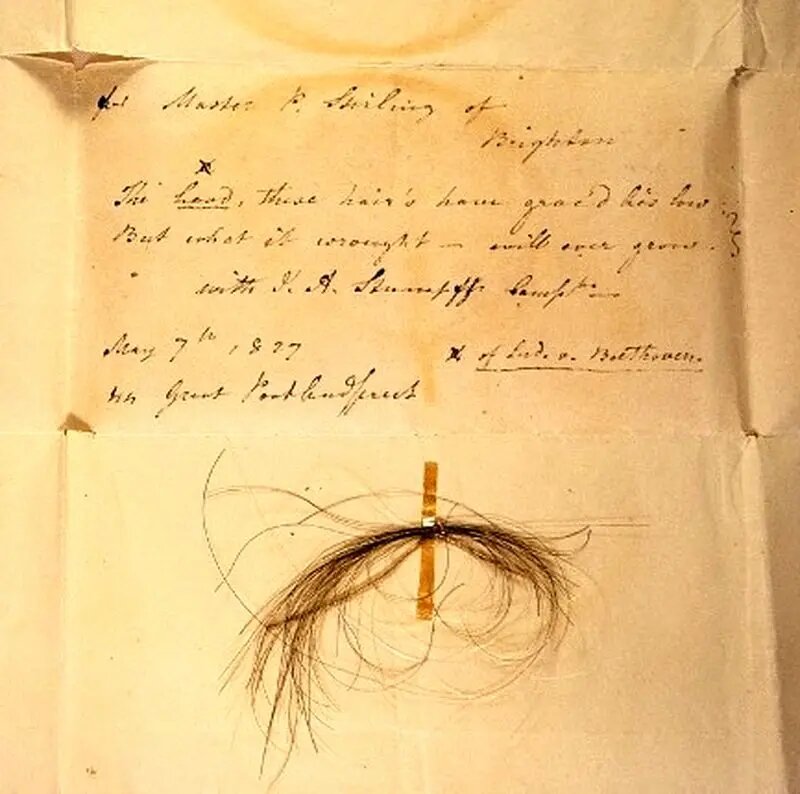 for Master P. Stirling of
Brighton
The head, these hair's have grac'd lies low
But what it wrought – will ever grow.
with J. A. Stumpff's Compts
May 7th, 1827
Great Portlandstreet
x of Lud. v. Beethoven.